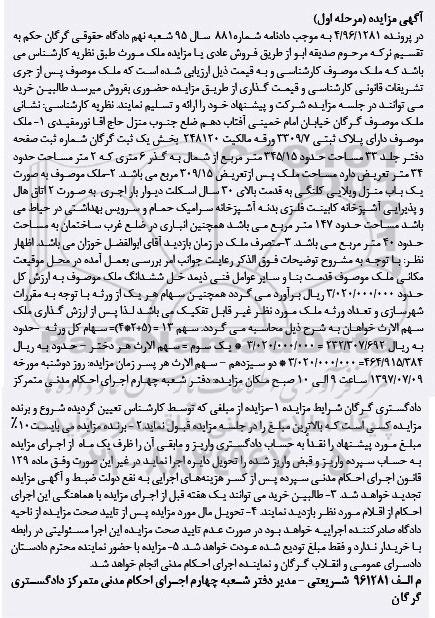 آگهی مزایده (مرحله اول)
در پرونده ۴/۹۶/۱۲۸۱ به موجب دادنامه شماره ۸۸۱ سال ۹۵ شعبه نهم دادگاه حقوقی گرگان حکم به
تقسیم ترکه مرحوم صدیقه ابو از طریق فروش عادی یا مزایده ملک مورث طبق نظریه کارشناس می
باشد که ملک موصوف کارشناسی و به قیمت ذیل ارزیابی شده است که ملک موصوف پس از جری
تشریفات قانونی کارشناسی و قیمت گذاری از طریق مزایده حضوری بفروش میرسد طالبین خرید
می توانند در جلسه مزایده شرکت و پیشنهاد خود را ارائه و تسلیم نمایند. نظریه کارشناسی: نشانی
ملک موصوف گرگان خیابان امام خمینی آفتاب دهم ضلع جنوب منزل حاج اقا نورمفیدی ۱- ملک
موصوف دارای پلاک ثبتی ۳۳۰۹/۷ ورقه مالکیت ۲۴۸۱۲۰ بخش یک ثبت گرگان شماره ثبت صفحه
دفتر جلد ۳۳ مساحت حدود ۳۴۵/۱۵ متر مربع از شمال به گذر ۶ متری که ۲ متر مساحت حدود
۳۴ متر تعریض دارد مساحت ملک پس از تعریض ۳۰۹/۱۵ متر مربع می باشد. ۲-ملک موصوف به صورت
یک باب منزل ویلایی کلنگی به قدمت بالای ۳۰ سال اسکلت دیوار بار اجری به صورت ۲ اتاق هال
و پذیرایی آشپزخانه کابینت فلزی بدنه آشپزخانه سرامیک حمام و سرویس بهداشتی در حیاط می
باشد مساحت حدود ۱۴۷ متر مربع می باشد همچنین انباری در ضلع غرب ساختمان به مساحت
حدود ۴۰ متر مربع می باشد. ۳-متصرف ملک در زمان بازدید آقای ابوالفضل خوزان می باشد. اظهار
نظر: با توجه به مشروح توضیحات فوق الذکر رعایت جوانب امر بررسی بعمل آمده در محل موقعیت
مکانی ملک موصوف قدمت بنا و سایر عوامل فنی ذیمد خل ششدانگ ملک موصوف به ارزش کل
حدود ۳/۰۲۰/۰۰۰/۰۰۰ ریال برآورد می گردد همچنین سهام هر یک از ورثه با توجه به مقررات
شهرسازی و تعداد ورثه ملک مورد نظر غیر قابل تفکیک می باشد لذا پس از ارزش گذاری ملک
سهم الارث خواهان به شرح ذیل محاسبه می گردد. سهم ۱۳ = (۵+۲*۴)= سهام کل ورثه -حدود
به ریال ۲۳۲/۳۰۷/۶۹۲ = ۳/۰۲۰/۰۰۰/۰۰۰ * یک سوم = سهم الارث هر دختر- حدود به ریال
۴۶۴/۹۱۵/۳۸۴=۳/۰۲۰/۰۰۰/۰۰۰ * دو سیزدهم - سهم الارث هر پسر زمان مزایده: روز دوشنبه مورخه
۱۳۹۷/۰۷/۰۹ ساعت ۹ الی ۱۰ صبح مکان مزایده: دفتر شعبه چهارم اجرای احکام مدنی متمرکز
دادگستری گرگان شرایط مزایده ۱-مزایده از مبلغی که توسط کارشناس تعیین گردیده شروع و برنده
مزایده کسی است که بالاترین مبلغ را در جلسه مزایده قبول نماید ۲- برنده مزایده می بایست ۱۰٪
مبلغ مورد پیشنهاد را نقدا به حساب دادگستری واریز و مابقی آن را ظرف یک ماه از اجرای مزایده
به حساب سپرده واریز و قبض واریز شده را تحویل دایره اجرا نماید در غیر این صورت وفق ماده ۱۲۹
قانون اجرای احکام مدنی سپرده پس از کسر هزینه‌های اجرایی به نفع دولت ضبط و آگهی مزایده
تجدید خواهد شد. ۳- طالبین خرید می توانند یک هفته قبل از اجرای مزایده با هماهنگی این اجرای
احکام از اقلام مورد نظر بازدید نمایند. ۴- تحویل مال مورد مزایده پس از تایید صحت مزایده از ناحیه
دادگاه صادرکننده اجراییه خواهد بود در صورت عدم تایید صحت مزایده این اجرا مسئولیتی در رابطه
با خریدار ندارد و فقط مبلغ تودیع شده عودت خواهد شد. ۵- مزایده با حضور نماینده محترم دادستان
دادسرای عمومی و انقلاب گرگان و نماینده اجرای احکام مدنی انجام خواهد شد.
م الف ۹۶۱۲۸۱ شریعتی - مدیر دفتر شعبه چهارم اجرای احکام مدنی متمرکز دادگستری
گرگان